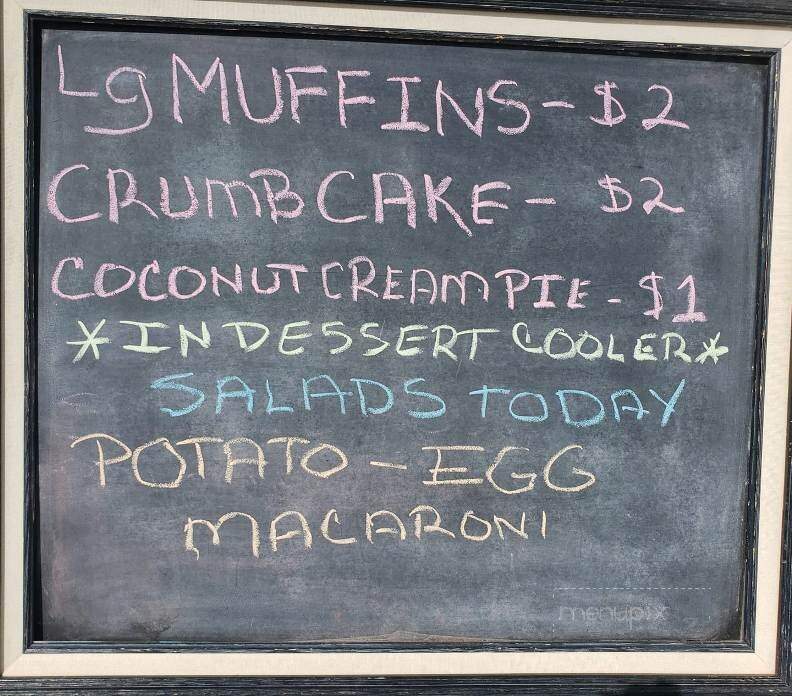 Lg MUFFINS - $2
CRUMB CAKE - $2
COCONUT CREAM PIE - $1
*IN DESSERT COOLER*
SALADS TODAY
POTATO - EGG
MACARONI
menupix